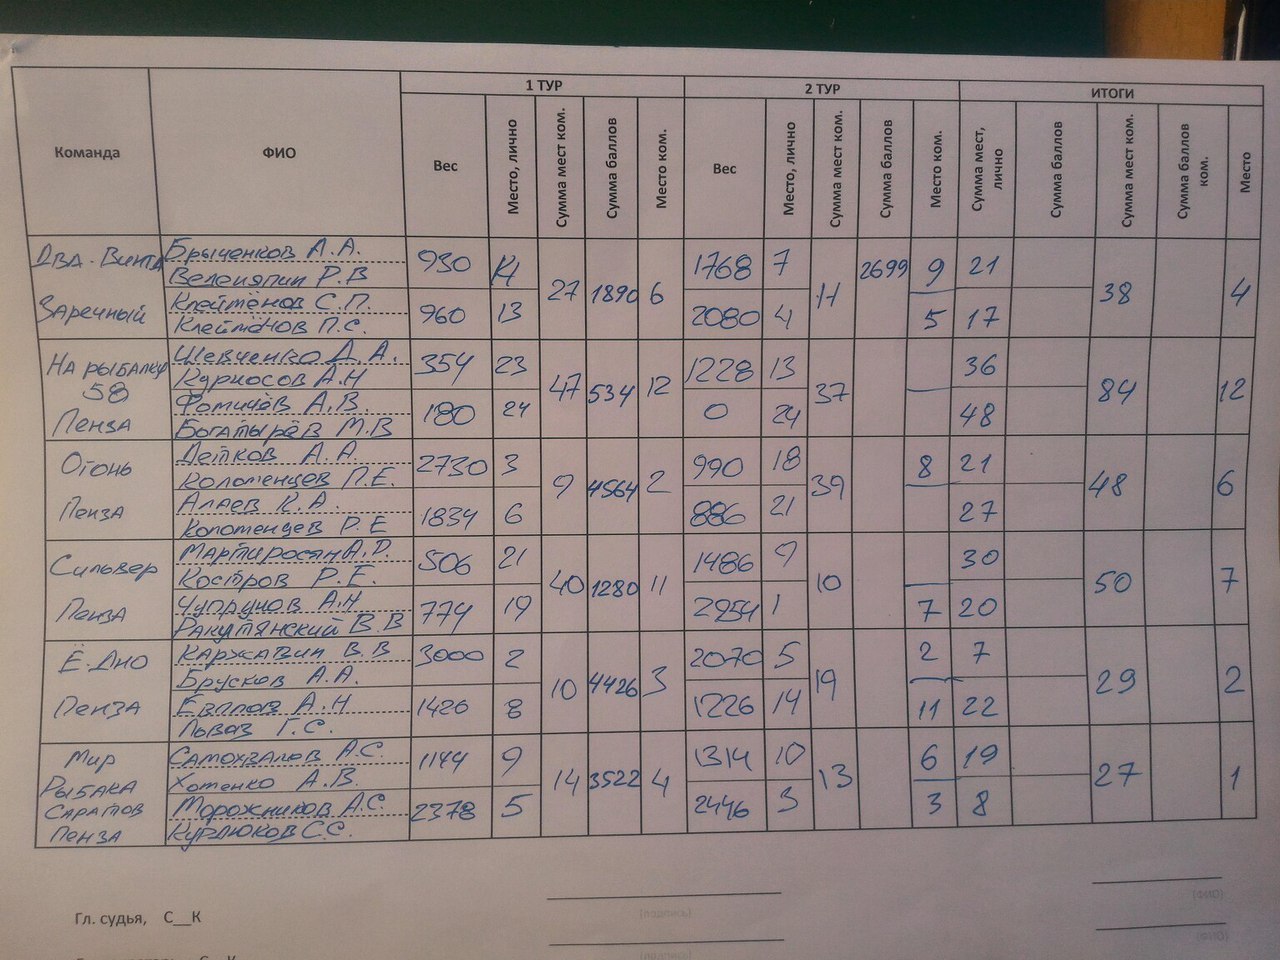 1 ТУР 2 ТУР ИТОГИ
Команда ФИО Вес Место, лично Сумма мест ком. Сумма баллов Место ком. Вес Место, лично Сумма мест ком. Сумма баллов Место ком. Сумма мест, лично Сумма баллов Сумма мест ком. Сумма баллов ком. Место
Два-Винта Брыченков А.А. 930 14 1768 7 2699 9 21
Веденяпин Р.В 27 1890 6 11 38 4
Заречный Клеймёнов С.П. 960 13 2080 4 5 17
Клеймёнов П.С.
На рыбалку Шевченко Д.А. 354 23 1228 13 36
58 Курносов А.Н 47 534 12 37 84 12
Пенза Фомичёв А.В. 180 24 0 24 48
Богатырёв М.В
Огонь Детков А.А. 2730 3 990 18 8 21
Коломенцев П.Е. 9 4564 2 39 48 6
Пенза Алаев К.А. 1834 6 886 21 27
Коломенцев Р.Е
Сильвер Мартиросян А.Р. 506 21 1486 9 30
Костров Р.Е. 40 1280 11 10 50 7
Пенза Чупрунов А.Н 774 19 2854 1 7 20
Ракутянский В.В
Ё-Дно Каржавин В.В 3000 2 2070 5 2 7
Брусков А.А. 10 4426 3 19 29 2
Пенза Евллов А.Н 1426 8 1226 14 11 22
Львов Г.С.
Мир Самохвалов А.С. 1144 9 1314 10 6 19
Рыбака Хотенко А.В. 14 3522 4 13 27 1
Саратов Морожников А.С. 2378 5 2446 3 3 8
Пенза Курлюков С.С.
Гл. судья, С__К